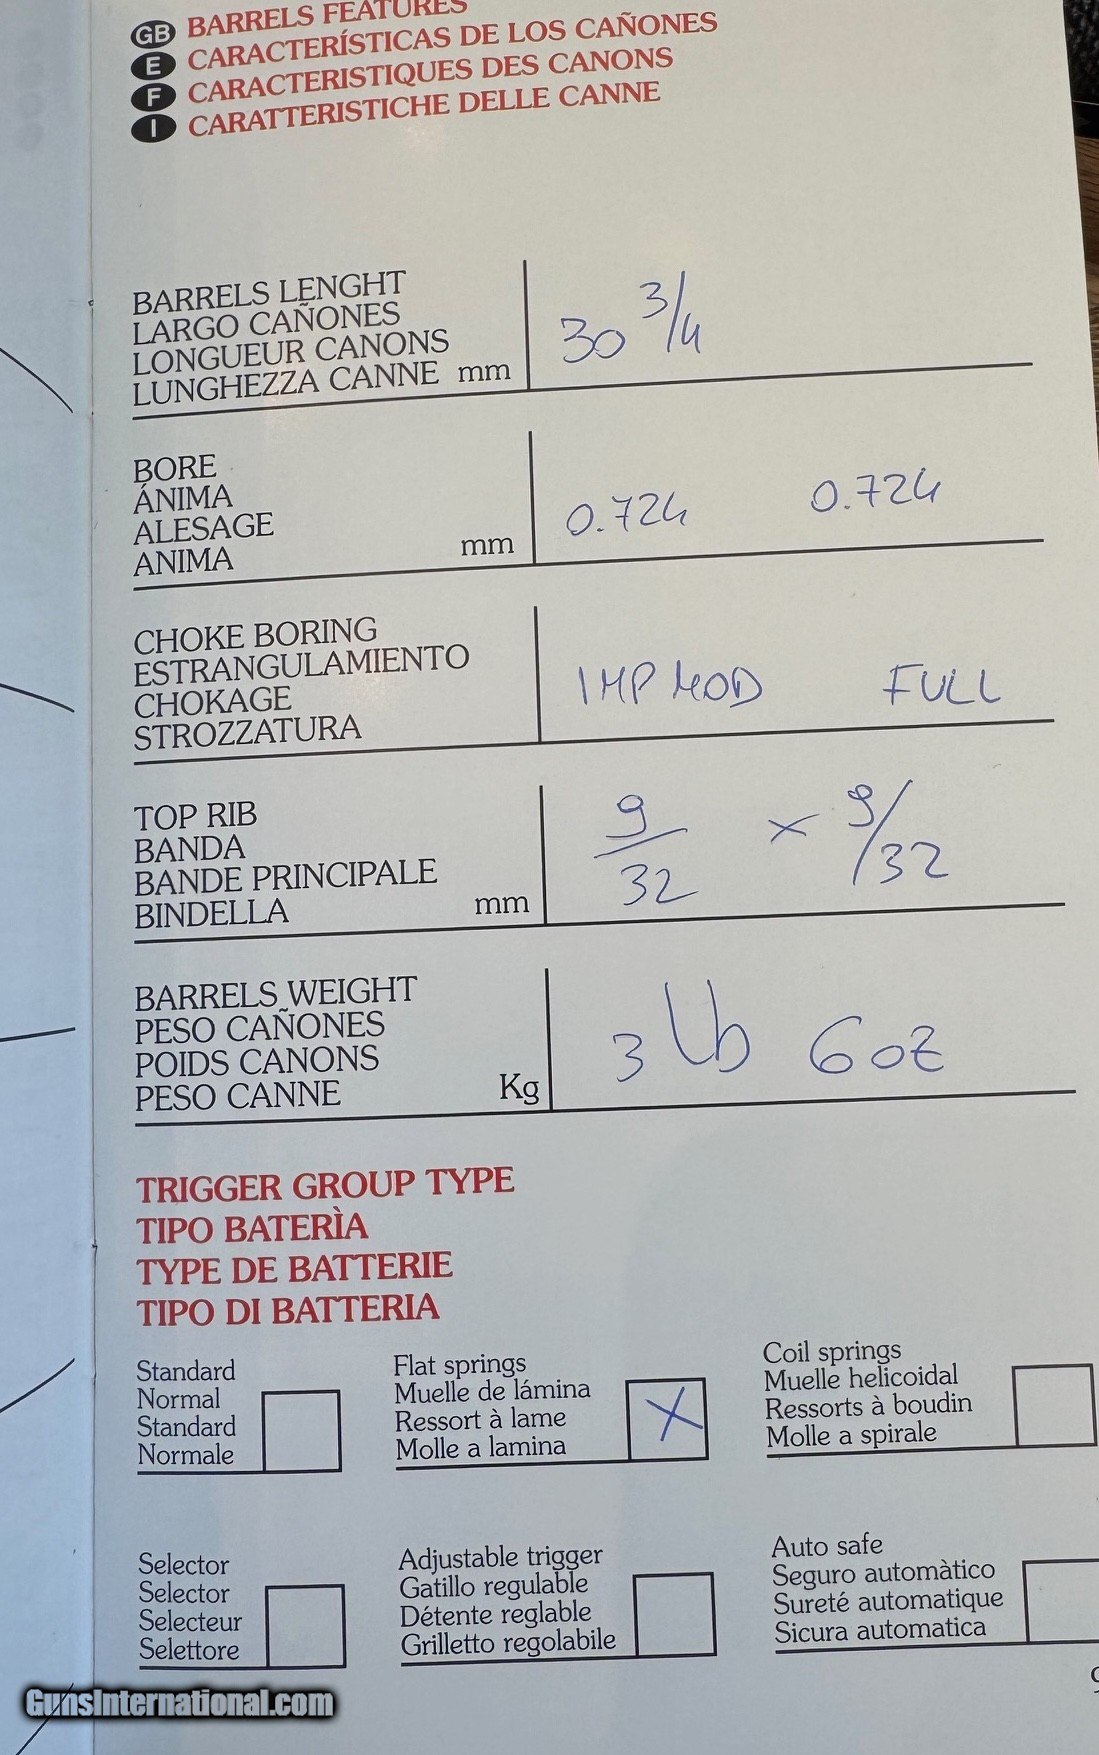 GB BARRELS FEATURES
E CARACTERÍSTICAS DE LOS CAÑONES
F CARACTERISTIQUES DES CANONS
I CARATTERISTICHE DELLE CANNE
BARRELS LENGHT
LARGO CAÑONES
LONGUEUR CANONS
LUNGHEZZA CANNE mm
30 3/4
BORE
ÁNIMA
ALESAGE
ANIMA mm
0.724 0.724
CHOKE BORING
ESTRANGULAMIENTO
CHOKAGE
STROZZATURA
IMP MOD FULL
TOP RIB
BANDA
BANDE PRINCIPALE
BINDELLA mm
9/32 x 9/32
BARRELS WEIGHT
PESO CAÑONES
POIDS CANONS
PESO CANNE Kg
3 lb 6 oz
TRIGGER GROUP TYPE
TIPO BATERÌA
TYPE DE BATTERIE
TIPO DI BATTERIA
Standard
Normal
Standard
Normale
Flat springs
Muelle de lámina
Ressort à lame
Molle a lamina
X
Coil springs
Muelle helicoidal
Ressorts à boudin
Molle a spirale
Selector
Selector
Selecteur
Selettore
Adjustable trigger
Gatillo regulable
Détente reglable
Grilletto regolabile
Auto safe
Seguro automàtico
Sureté automatique
Sicura automatica
GunsInternational.com